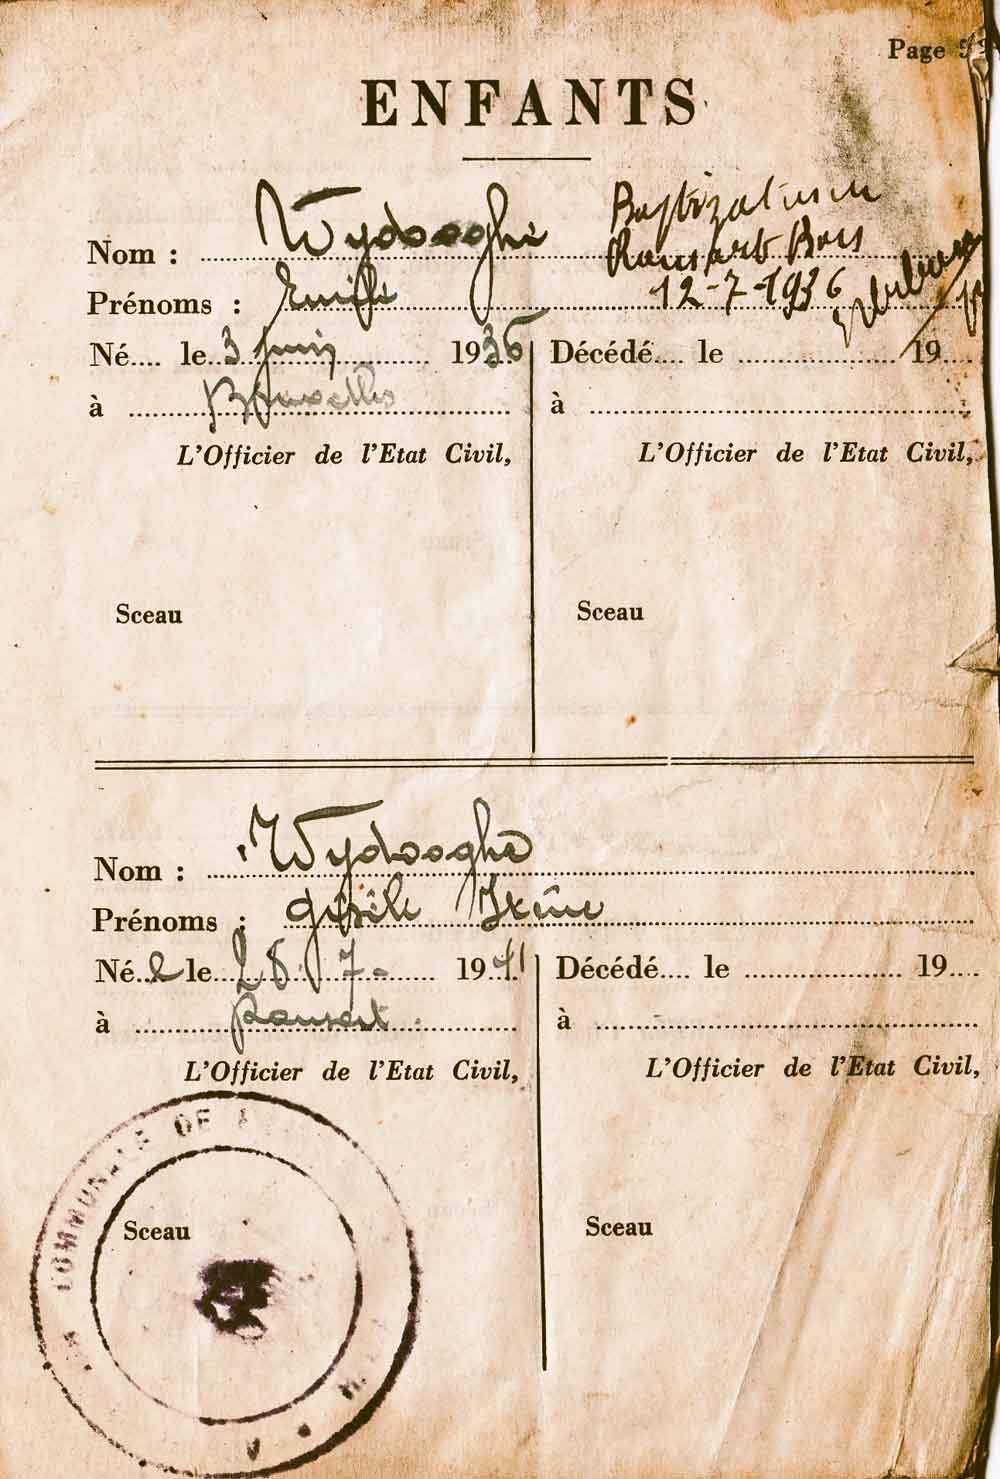 Page
ENFANTS
Nom : Wydooghe Baptizatus in
Ransart Bois
Prénoms : Emile 12-7-1936
Né.... le 3 juin 1936 Décédé.... le .................... 19....
à Bruxelles à ....................
L'Officier de l'Etat Civil, L'Officier de l'Etat Civil,
Sceau Sceau
Nom : Wydooghe
Prénoms : Gisèle Irène
Née le 28 - 7 - 1941 Décédé.... le .................... 19....
à Ransart à ....................
L'Officier de l'Etat Civil, L'Officier de l'Etat Civil,
COMMUNALE DE
Sceau Sceau